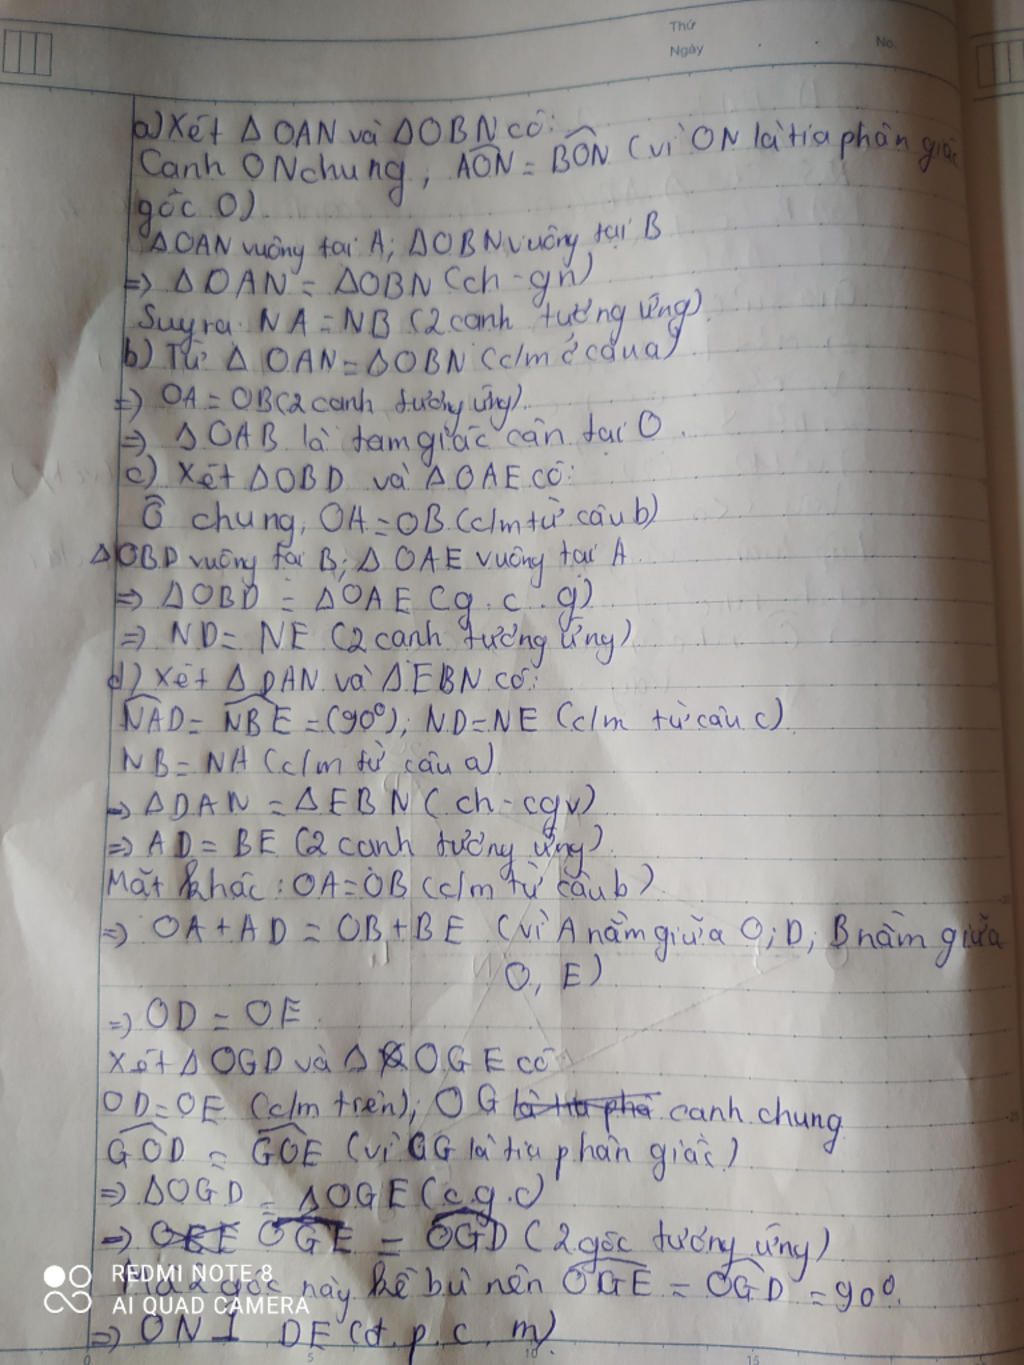 Thứ
Ngày
No.
a) Xét Δ OAN và Δ OBN có:
Cạnh ON chung, AÔN = BÔN (vì ON là tia phân giác
góc O)
Δ OAN vuông tại A; Δ OBN vuông tại B
=> Δ OAN = Δ OBN (ch - gn)
Suy ra: NA = NB (2 cạnh tương ứng)
b) Từ Δ OAN = Δ OBN (c/m ở câu a)
=> OA = OB (2 cạnh tương ứng)
=> Δ OAB là tam giác cân tại O.
c) Xét Δ OBD và Δ OAE có:
Ô chung, OA = OB (c/m từ câu b)
Δ OBD vuông tại B; Δ OAE vuông tại A
=> Δ OBD = Δ OAE (g.c.g)
=> ND = NE (2 cạnh tương ứng)
d) Xét Δ DAN và Δ EBN có:
NAD = NBE = (90°); ND = NE (c/m từ câu c)
NB = NA (c/m từ câu a)
=> Δ DAN = Δ EBN (ch - cgv)
=> AD = BE (2 cạnh tương ứng)
Mặt khác: OA = OB (c/m từ câu b)
=> OA + AD = OB + BE (vì A nằm giữa O; D; B nằm giữa
O, E)
=> OD = OE
Xét Δ OGD và Δ OGE có
OD = OE (c/m trên); OG cạnh chung
GOD = GOE (vì OG là tia phân giác)
=> Δ OGD = Δ OGE (c.g.c)
=> OGE = OGD (2 góc tương ứng)
Mà 2 góc này kề bù nên OGE = OGD = 90°.
=> ON ⊥ DE (đ.p.c.m)
REDMI NOTE 8
AI QUAD CAMERA
5
10
15